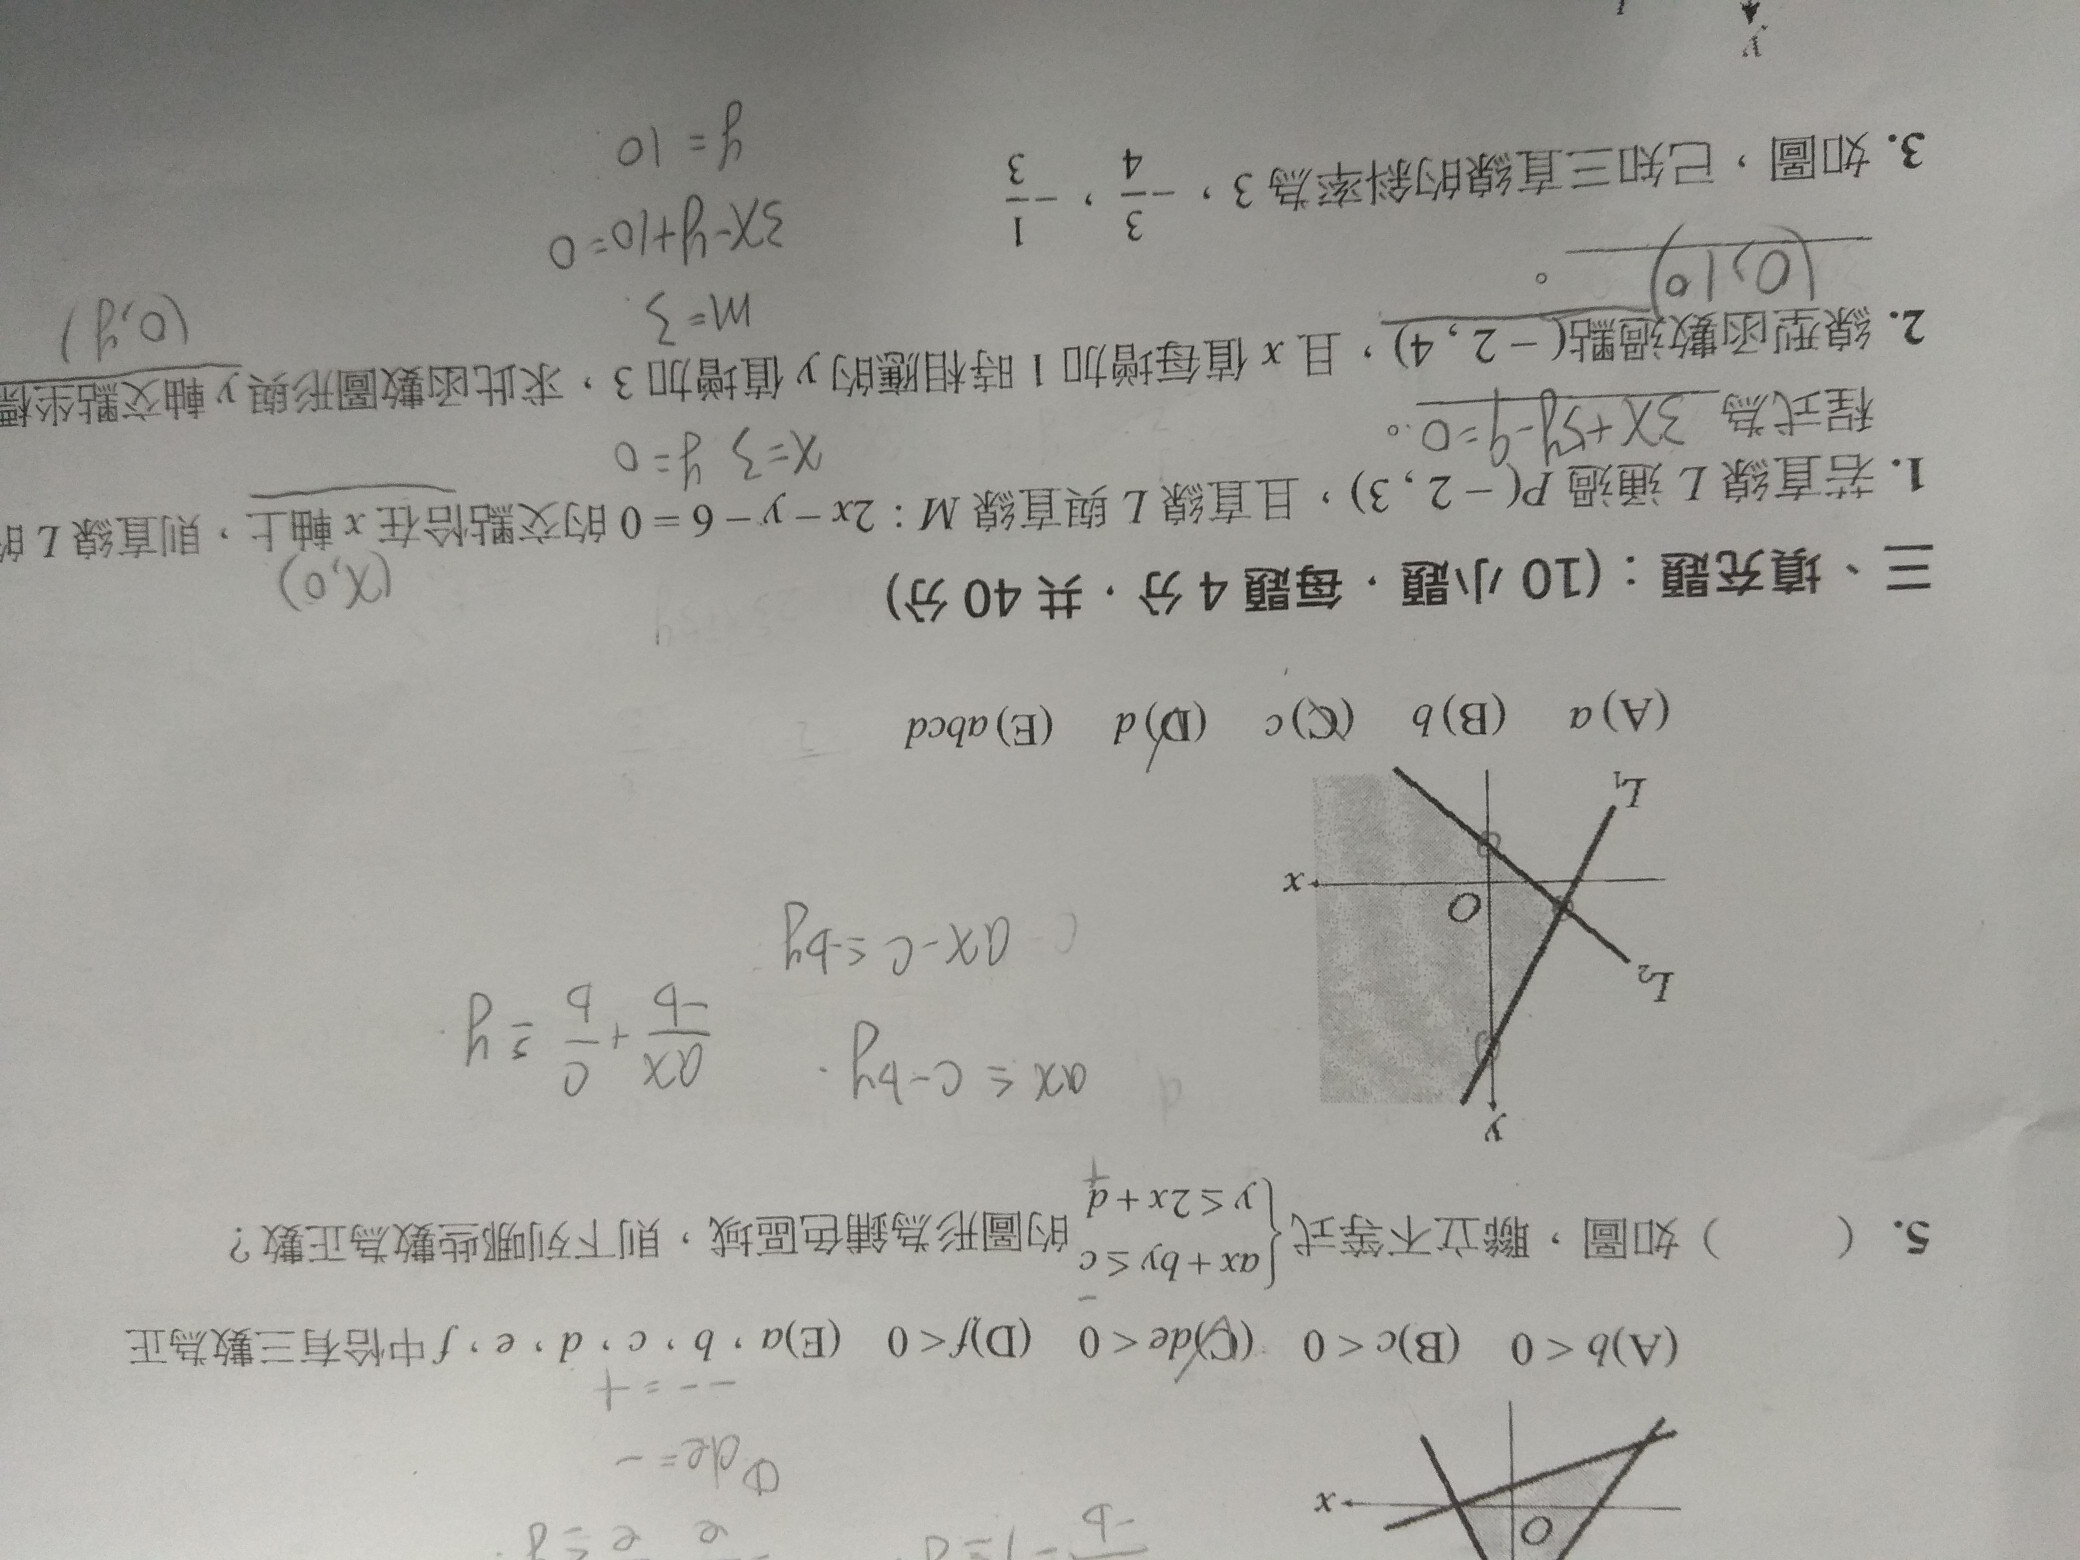 e e ≤ y
-b
① de = -
- - = +
O
x
(A) b < 0 (B) c < 0 (C) de < 0 (D) f < 0 (E) a，b，c，d，e，f 中恰有三數為正
5. ( ) 如圖，聯立不等式 { ax + by ≤ c
y ≤ 2x + d 的圖形為鋪色區域，則下列哪些數為正數？
+
y
ax ≤ c - by
ax/-b + c/b ≥ y
ax - c ≤ -by
L₂
O
x
L₁
(A) a (B) b (C) c (D) d (E) abcd
三、填充題：(10 小題．每題 4 分．共 40 分)
(x,0)
1. 若直線 L 通過 P(－2 , 3)，且直線 L 與直線 M：2x－y－6＝0 的交點恰在 x 軸上，則直線 L 的
x=3 y=0
程式為 3x+5y-9=0 。
2. 線型函數過點(－2 , 4)，且 x 值每增加 1 時相應的 y 值增加 3，求此函數圖形與 y 軸交點坐標
(0,10) 。
m=3
(0,y)
3x-y+10=0
y=10
3. 如圖，已知三直線的斜率為 3，－3/4，－1/3
y